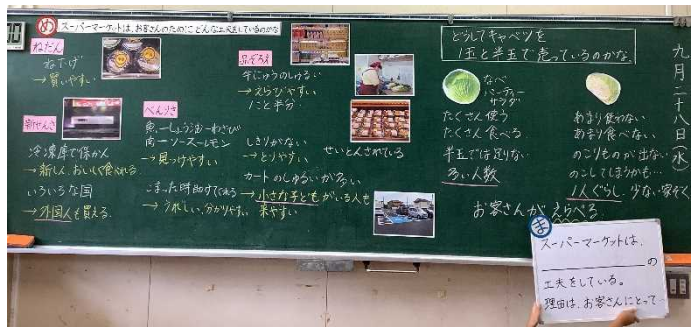 め スーパーマーケットは、お客さんのためにどんな工夫をしているのかな
ねだん
ねさげ
→買いやすい
新せんさ
冷凍庫で保かん
→新しく、おいしく食べれる
いろいろな国
→外国人も買える
べんりさ
魚ーしょう油ーわさび
肉ーソースーレモン
→見つけやすい
こまった時助けてくれる
→うれしい、分かりやすい
品ぞろえ
牛にゅうのしゅるい
→えらびやすい
1こと半分
しきりがない
→とりやすい
せいとんされている
カートのしゅるいが多い
→小さな子どもがいる人も
来やすい
どうしてキャベツを
1玉と半玉で売っているのかな。
なべ
パーティー
サラダ
たくさん使う
たくさん食べる
半玉では足りない
多い人数
あまり使わない
あまり食べない
のこりものが出ない
のこしてしまうかも…
1人ぐらし 少ない家ぞく
お客さんがえらべる
九月二十八日(水)
ま
スーパーマーケットは、
の
工夫をしている。
理由は、お客さんにとって…